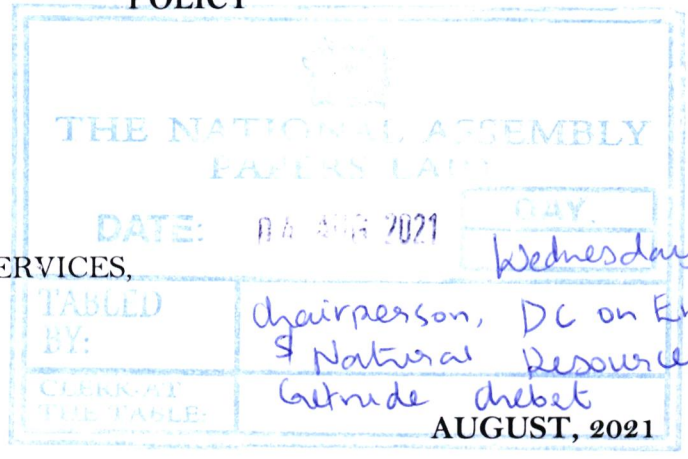 POLICY
THE NATIONAL ASSEMBLY
PAPERS LAID
DATE: 04 AUG 2021 DAY.
Wednesday
ERVICES,
TABLED BY: Chairperson, DC on En
& Natural Resource
CLERK-AT THE-TABLE: Getrude Chebet
AUGUST, 2021